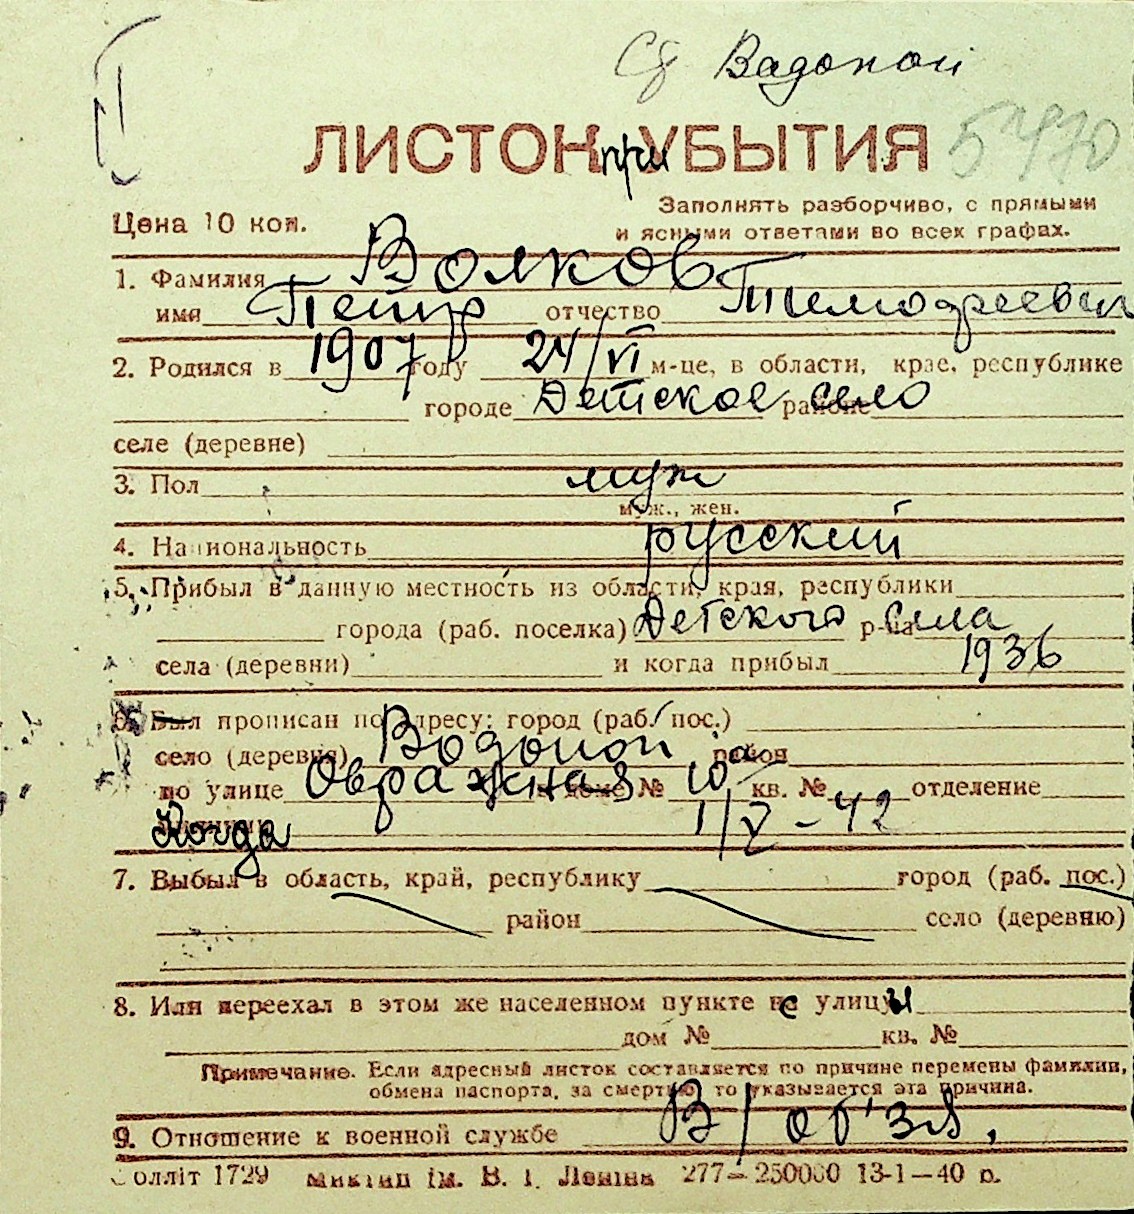 Вадопой
ЛИСТОК при УБЫТИЯ 5470
Заполнять разборчиво, с прямыми
Цена 10 коп. и ясными ответами во всех графах.
1. Фамилия Волков
имя Петр отчество Тимофеевич
2. Родился в 1907 году 24/VI м-це, в области, крае, республике
городе Детское село районе
селе (деревне)
3. Пол муж
муж., жен.
4. Национальность русский
5. Прибыл в данную местность из области, края, республики
города (раб. поселка) Детского села р-на
села (деревни) и когда прибыл 1936
6. Был прописан по адресу: город (раб. пос.)
село (деревня) Водопой район
по улице Овражная доме № 10а кв. № отделение
Когда 1/V - 42
7. Выбыл в область, край, республику город (раб. пос.)
район село (деревню)
8. Или переехал в этом же населенном пункте с улицы
дом № кв. №
Примечание. Если адресный листок составляется по причине перемены фамилии,
обмена паспорта, за смертью то указывается эта причина.
9. Отношение к военной службе В/об'зя,
Солліт 1729 ім. В. І. Леніна 277—250000 13-1—40 р.